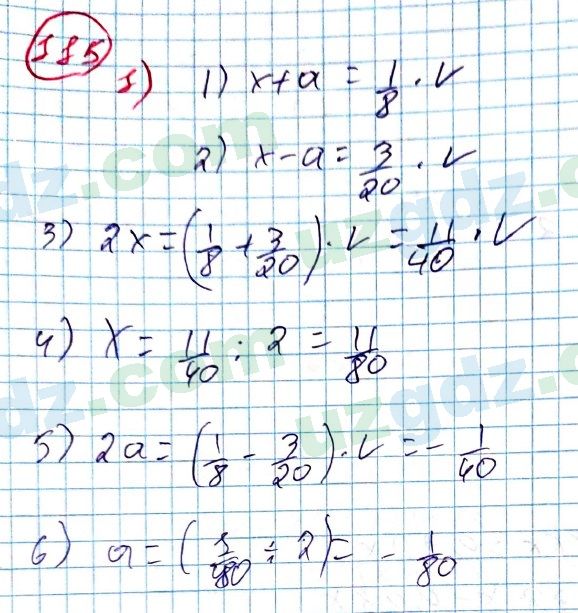 115
1) 1) x+a = 1/8 · V
2) x-a = 3/20 · V
3) 2x = (1/8 + 3/20) · V = 11/40 · V
4) X = 11/40 : 2 = 11/80
5) 2a = (1/8 - 3/20) · V = - 1/40
6) a = ( ÷ 2) = - 1/80
uzgdz.com